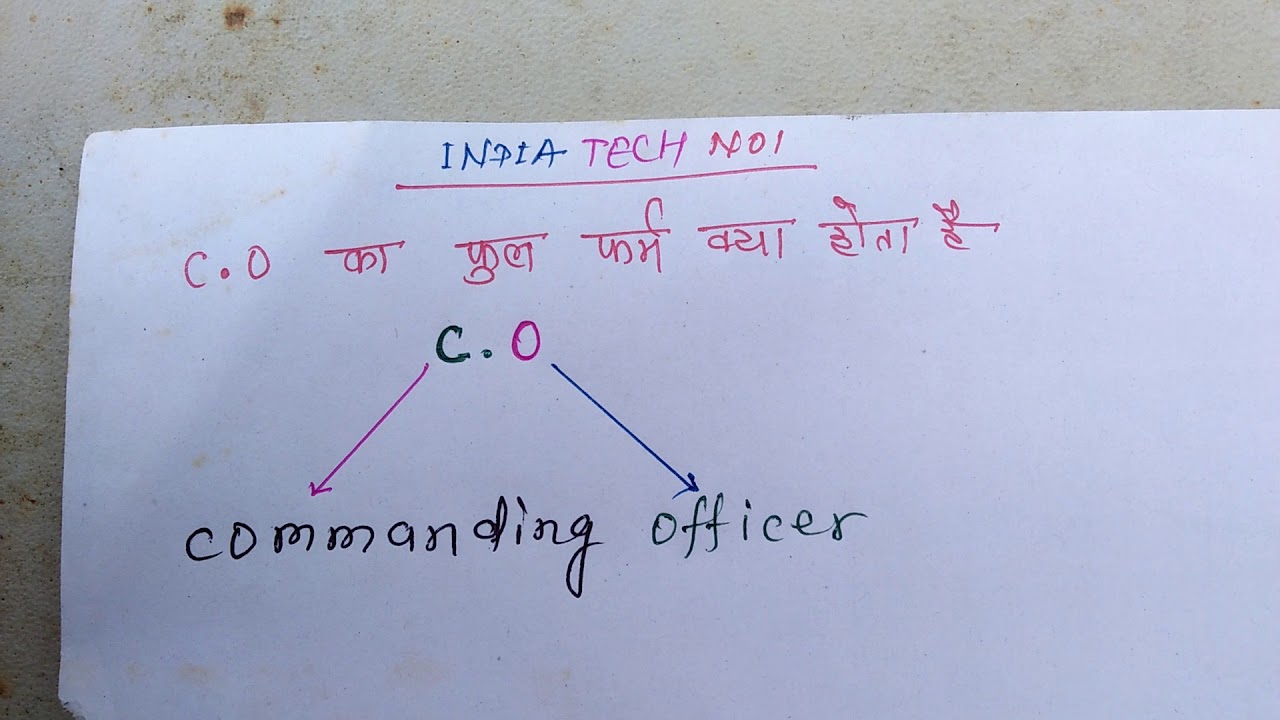 INDIA TECH NO1
C.O का फुल फर्म क्या होता है
C.O
commanding officer